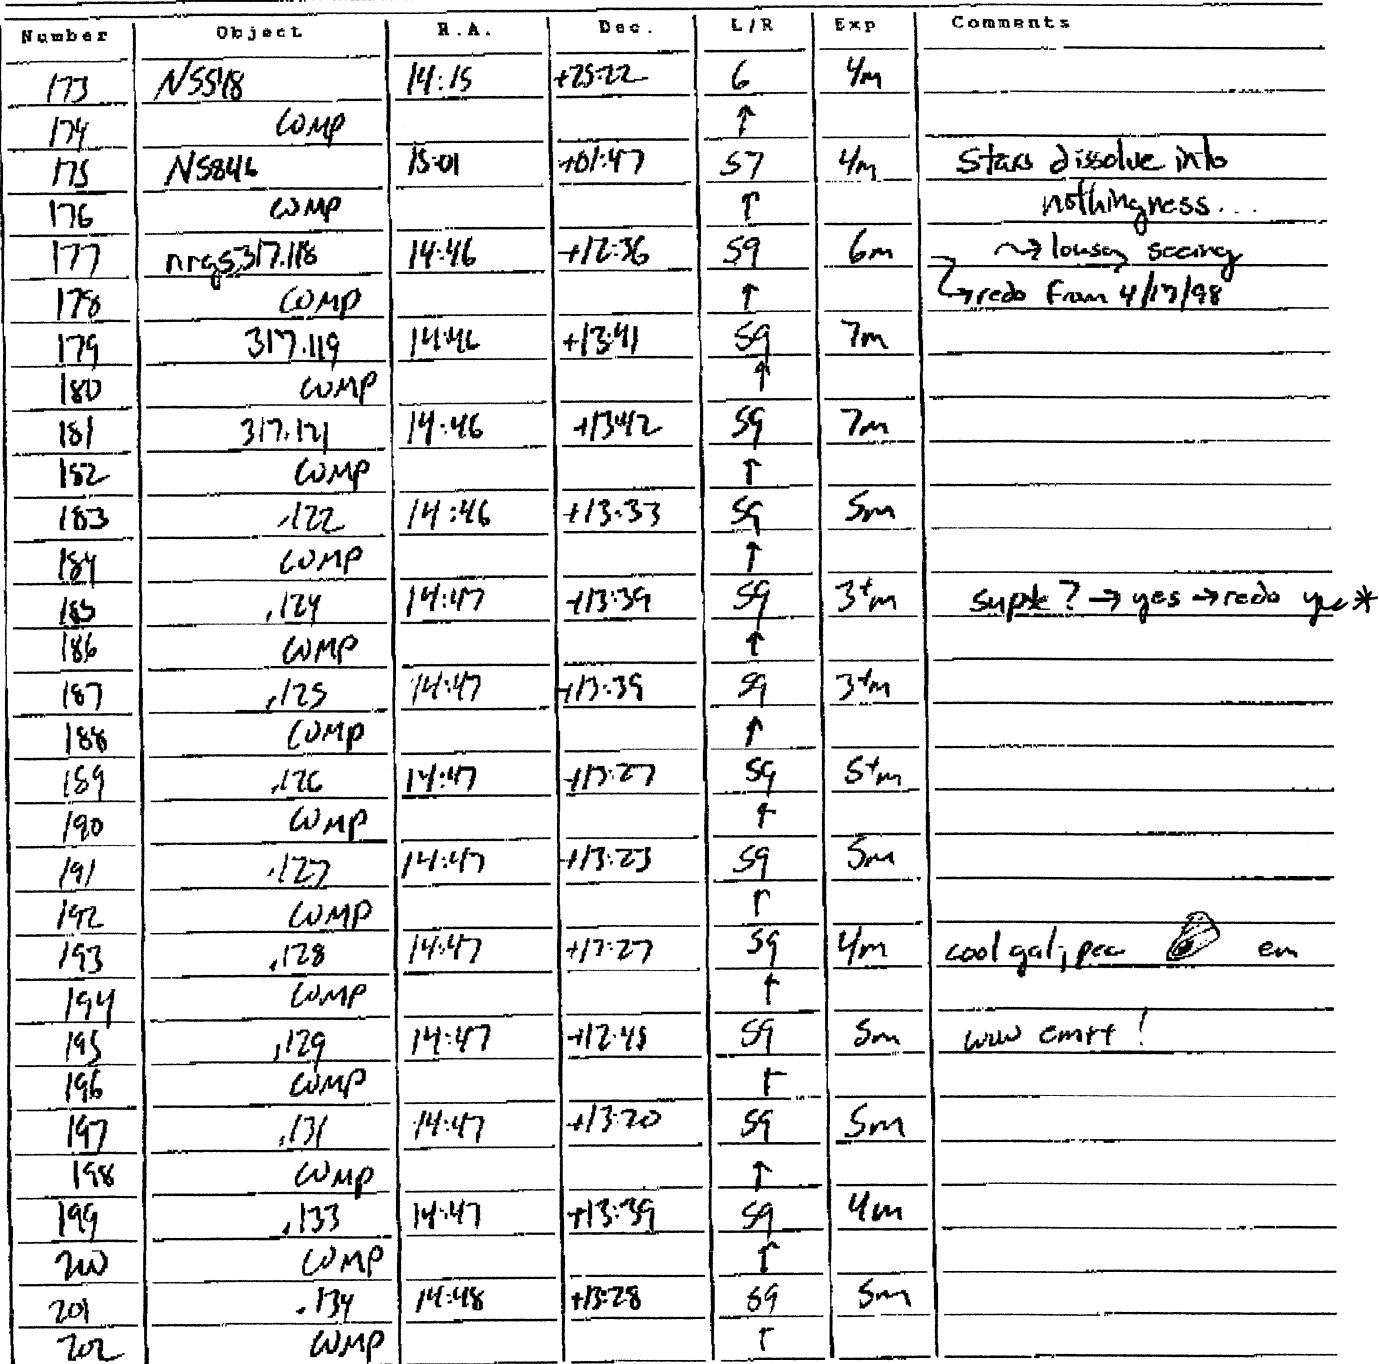 Number Object R.A. Dec. L/R Exp Comments
173 N5548 14:15 +25:22 6 4m
174 COMP ↑
175 N5846 15:01 +01:47 57 4m Stars dissolve into
176 COMP ↑ nothingness...
177 nrgs317.118 14:46 +12:36 59 6m ~→ lousy seeing
178 COMP ↑ ↳redo from 4/17/98
179 317.119 14:46 +13:41 59 7m
180 COMP ↑
181 317.121 14:46 +13:42 59 7m
182 COMP ↑
183 .122 14:46 +13:33 59 5m
184 COMP ↑
185 .124 14:47 +13:39 59 3+m ? → yes → redo
186 COMP ↑
187 .125 14:47 +13:39 59 3+m
188 COMP ↑
189 .126 14:47 +13:27 59 5+m
190 COMP ↑
191 .127 14:47 +13:23 59 5m
192 COMP ↑
193 .128 14:47 +13:27 59 4m cool gal; pec em
194 COMP ↑
195 .129 14:47 +12:45 59 5m !
196 COMP ↑
197 .131 14:47 +13:20 59 5m
198 COMP ↑
199 .133 14:47 +13:39 59 4m
200 COMP ↑
201 .134 14:48 +13:28 59 5m
202 COMP ↑